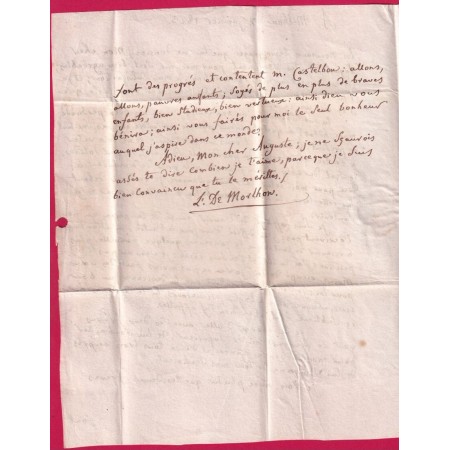 font des progrès et contentent m. Castelbou; allons,
allons, pauvres enfants; soyés de plus en plus de braves
enfants, bien studieux, bien vertueux: ainsi dieu vous
bénira; ainsi vous fairés pour moi le seul bonheur
auquel j'aspire dans ce monde.
Adieu, Mon cher Auguste; je ne sçaurois
assés te dire combien je t'aime, parceque je suis
bien convaincu que tu le mérites.
L. De Morlhon.